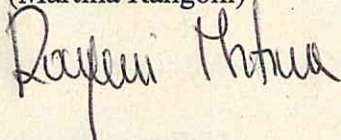 (Martina Rangoni)
Rangoni Martina